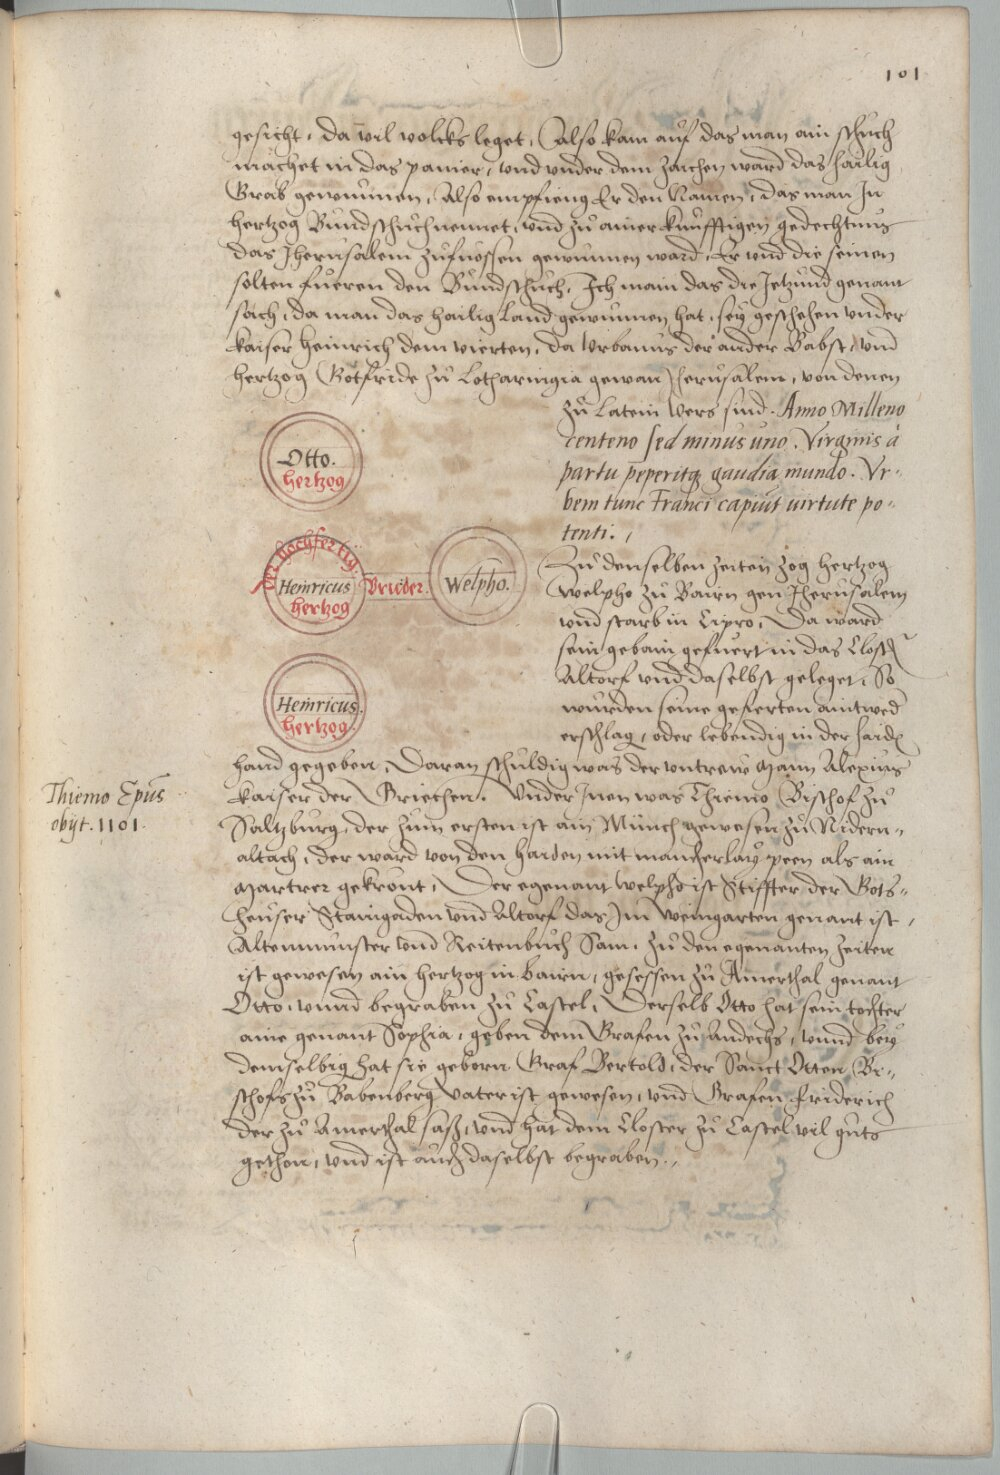 101
gesicht, da vil volcks leget, Also kam auf das man ain schuch
machet in das panier, und under dem zaichen ward das hailig
Grab gewunnen, Also empfieng Er den Namen, das man In
hertzog Bundschuch nennet, und zu ainer kunfftigen gedechtnus
das Jherusalem zufuossen gewunnen ward, Er und die seinen
solten fueren den Bundschuch, Ich main das die Jetzund genant
sach, da man das hailig Land gewunnen hat, sey geschehen under
kaiser Heinrich dem vierten, da Urbanus der ander Babst, und
hertzog Gotfride zu Lotharingia gewan Jherusalem, von denen
zu Latein Vers sind. Anno Milleno
centeno sed minus uno. Virginis à
partu peperitq gaudia mundo. Vr-
bem tunc Franci capiut uirtute po-
tenti.
Otto.
hertzog
der hochfertig.
Heinricus
hertzog
Brueder.
Welpho.
Heinricus.
hertzog.
Zu denselben zeiten zog hertzog
Welpho zu Bairn gen Jherusalem
und starb in Cipro, Da ward
sein gebain gefuert in das Closter
Altorf und daselbst geleget, So
wurden seine geferten aintweder
erschlag, oder lebendig in der haiden
hand gegeben, Daran schuldig was der untreue Mann Alexius
Kaiser der Griechen. Under Inen was Thiemo Bischof zu
Thiemo Epus
obijt. 1101.
Saltzburg, der zum ersten ist ain Münch gewesen zu Nidern-
altach, der ward von den haiden mit mancherlay peen als ain
Martrer gekrönt, Der egenant Welpho ist Stiffter der Gots-
heuser Staingaden und Altorf das Jm Weingarten genant ist,
Altenmunster und Reitenbuch Sam. Zu den egenanten zeiten
ist gewesen ain hertzog in Bairn, gesessen zu Amerthal genant
Otto, unnd begraben zu Castel, Derselb Otto hat sein tochter
aine genant Sophia, geben dem Grafen zu Andechs, unnd bey
demselbig hat sie geborn Graf Bertold, der Sanct Otten Bi-
schofs zu Babenberg vater ist gewesen, und Grafen Friderich
der zu Amerthal sasz, und hat dem Closter zu Castel vil guts
gethon, und ist auch daselbst begraben.